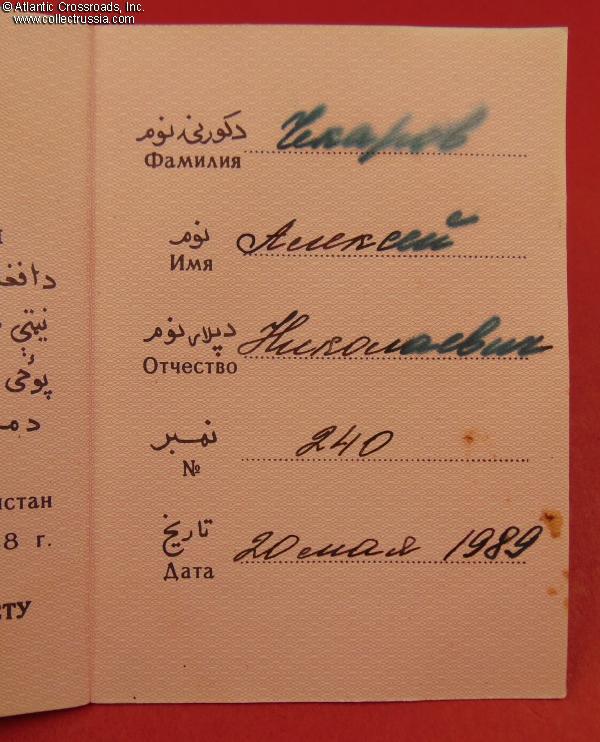 © Atlantic Crossroads, Inc.
www.collectrussia.com
دکورنۍ نوم
Фамилия Чекаров
نوم
Имя Алексей
دپلار نوم
Отчество Николаевич
نمبر
№ 240
تاریخ
Дата 20 мая 1989
دافغ
نیتې
پوځی
دم
истан
8 г.
ЕТУ